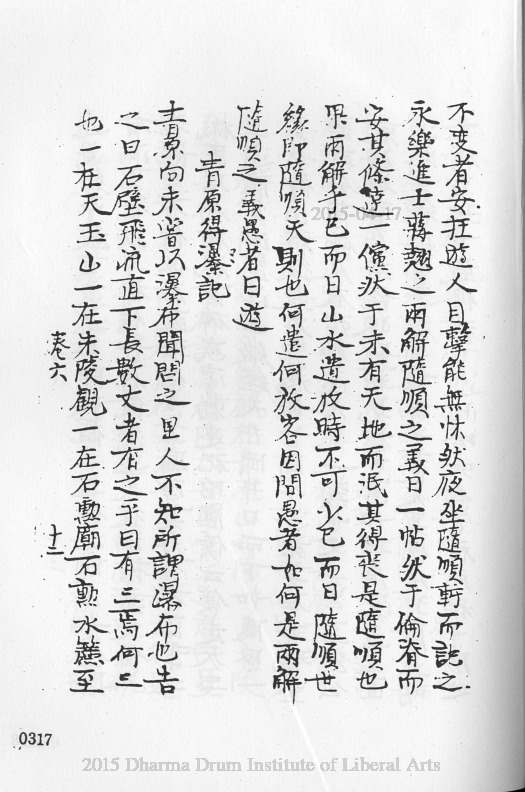 不变者安在遊人目擊能無怵然夜坐隨順軒而記之
永樂進士蔣翹之兩解隨順之義曰一帖然于倫脊而
安其條達一儻然于未有天地而泯其得喪是隨順也
果兩解乎已而曰山水遣放時不可少已而曰隨順世
緣即隨順天則也何遣何放客因問愚者如何是兩解
隨順之義愚者曰遊
青原得瀑記
青原向未嘗以瀑布聞問之里人不知所謂瀑布也告
之曰石壁飛流直下長數丈者有之乎曰有三焉何三
也一在天玉山一在朱陵觀一在石勳廟石勳水驫至
卷六
十二
0317
2015-04-17
2015 Dharma Drum Institute of Liberal Arts